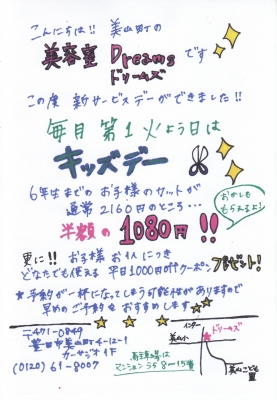 こんにちは!! 美山町の
美容室 Dreams です
ドリームズ
この度 新サービスデーができました!!
毎月 第1火よう日は
キッズデー
6年生までの お子様のカットが
通常 2160円のところ…
半額の 1080円!!
おかしも
もらえるよ!
更に!! お子様 お1人につき
どなたでも使える 平日1000円offクーポン プレゼント!
★予約が一杯になってしまう可能性がありますので
早めのご予約を おすすめします
〒471-0849
豊田市美山町4-12-1
カーサジオ1F
(0120) 61-8007
駐車場は
マンションうら 8〜15番
インター
美山小
ドリームズ
美山こども園